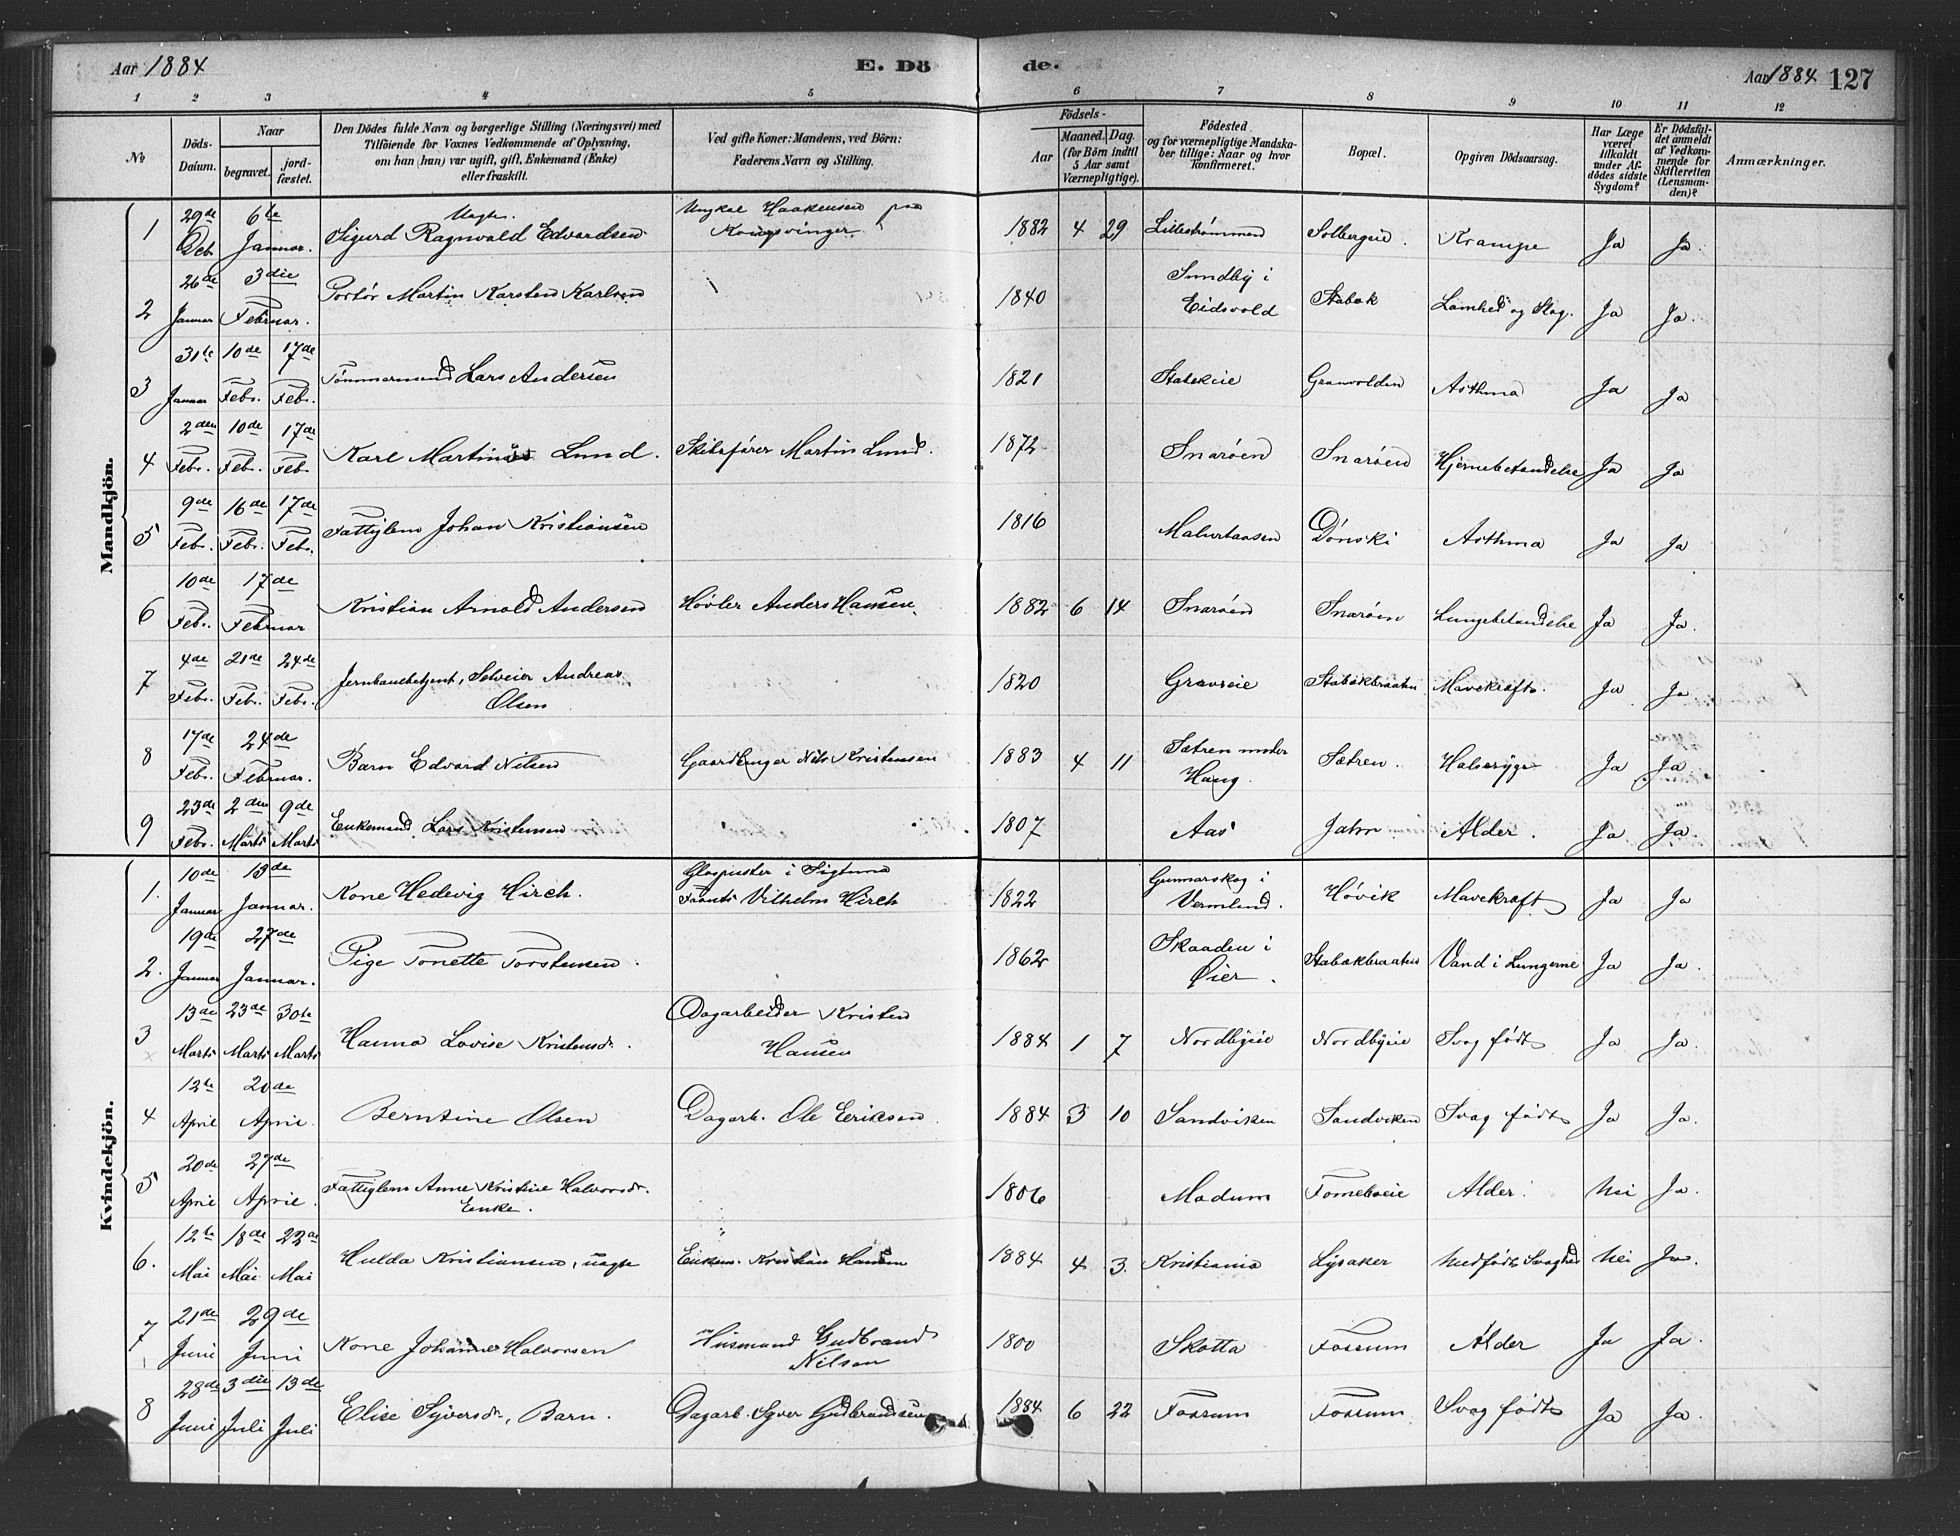 Aar 1884 E. Dö de. Aar 1884 127
1 2 3 4 5 6 7 8 9 10 11 12
No
Döds-
Datum.
Naar
begravet.
jord-
fæstet.
Den Dödes fulde Navn og borgerlige Stilling (Næringsvei) med
Tilföiende for Voxnes Vedkommende af Oplysning,
om han (hun) var ugift, gift, Enkemand (Enke)
eller fraskilt.
Ved gifte Koner: Mandens, ved Börn:
Faderens Navn og Stilling.
Födsels-
Aar
Maaned. Dag.
(for Börn indtil
5 Aar samt
Værnepligtige).
Födested
og for værnepligtige Mandska-
ber tillige: Naar og hvor
Konfirmeret.
Bopæl.
Opgiven Dödsaarsag.
Har Læge
været
tilkaldt
under Af-
dödes sidste
Sygdom?
Er Dödsfal-
det anmeldt
af Vedkom-
mende for
Skifteretten
(Lensman-
den)?
Anmærkninger.
Mandkjön.
29de 6te Uægte. Ungkal Haakensen paa
1 Dcb. Januar. Sigurd Ragnvald Edvardsen Kongsvinger. 1882 4 29 Lillestrømmen Solbergeie. Krampe Ja Ja
26de 3die Sundby i
2 Januar Februar. Portør Martin Karsten Karlsen 1840 Eidsvold Stabæk Lamhed og Slag. Ja Ja.
31te 10de 17de
3 Januar Febr. Febr. Tømmermand Lars Andersen 1821 Stabækeie Granvolden Asthma Ja Ja
2den 10de 17de
4 Febr. Febr. Febr Karl Martinus Lund. Skibsfører Martin Lund. 1872 Snarøen Snarøen Hjernebetændelse Ja Ja
9de 16de 17de
5 Febr. Febr. Febr. Fattiglem Johan Kristiansen 1816 Dønski Asthma Ja Ja
10de 17de
6 Febr. Februar Kristian Arnold Andersen Høvler Anders Hansen. 1882 6 14 Snarøen Snarøen Lungebetændelse Ja Ja.
4de 21de 24de
7 Febr. Febr. Febr. Jernbanebetjent, Selveier Andreas
Olsen 1820 Gravseie Stabækbraaten Mavekræft. Ja Ja
17de 24de Sætren under
8 Febr. Februar. Barn Edvard Nilsen Gaardbruger Nils Kristensen 1883 4 11 Haug. Sætren. Halssyge Ja Ja
23de 2den 9de
9 Febr. Marts Marts Enkemand Lars Kristensen 1807 Aas Jahr Alder. Ja Ja.
Kvindekjön.
10de 13de Glaspuster i Sigtuna Gunnarskog i
1. Januar Januar. Kone Hedevig Hirch. Frants Vilhelm Hirch 1822 Vermland. Høvik Mavekræft Ja Ja
19de 27de Skaaden i
2. Januar Januar. Pige Tonette Torstensen. 1862 Øier. Stabækbraaten Vand i Lungerne Ja Ja.
13de 23de 30te Dagarbeider Kristen
3 Marts Marts Marts Hanna Lovise Kristensdr. Hansen 1884 1 7 Nordbyeie Nordbyeie Svag født Ja Ja.
12te 20de
4 April April. Berntine Olsen Dagarb. Ole Eriksen 1884 3 10 Sandviken Sandviken Svag født Ja Ja.
20de 27de
5 April April. Fattiglem Anne Kristine Halvorsdr.
Enke. 1806 Modum Forneboeie Alder. Nei Ja.
12te 18de 22de
6. Mai Mai Mai Hulda Kristiansen, uægte Enkem. Kristian Hansen 1884 4 3. Kristiania Lysaker Medfødt Svaghed Nei Ja.
21de 29de
7 Juni Juni Kone Johanne Halvorsen Husmand Gudbrand
Nilsen 1800 Skotta Fossum Alder Ja Ja.
28de 3die 13de
8 Juni Juli Juli Elise Syversdr, Barn. Dagarb. Syver Gudbrandsen 1884 6 22 Fossum Fossum Svag født Ja Ja.